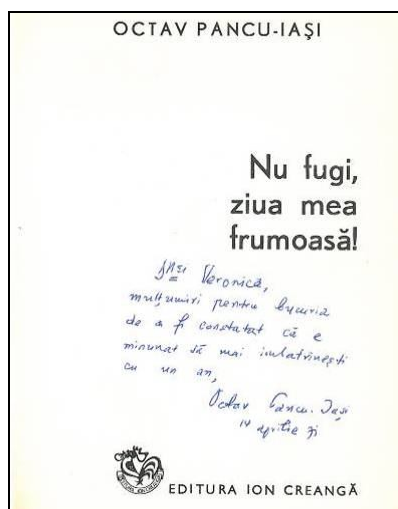 OCTAV PANCU-IAȘI
Nu fugi,
ziua mea
frumoasă!
Veronica,
mulțumiri pentru bucuria
de a fi constatat că e
minunat să mai îmbătrînești
cu un an,
Octav Pancu-Iași
14 aprilie 71
EDITURA ION CREANGĂ